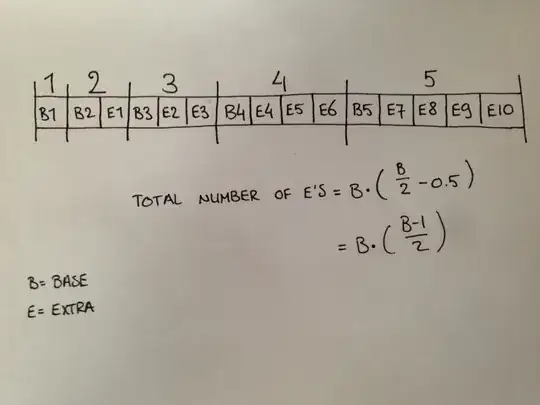 1 2 3 4 5
B1 B2 E1 B3 E2 E3 B4 E4 E5 E6 B5 E7 E8 E9 E10
TOTAL NUMBER OF E'S = B·(B/2 - 0.5)
= B·(B-1/2)
B= BASE
E= EXTRA